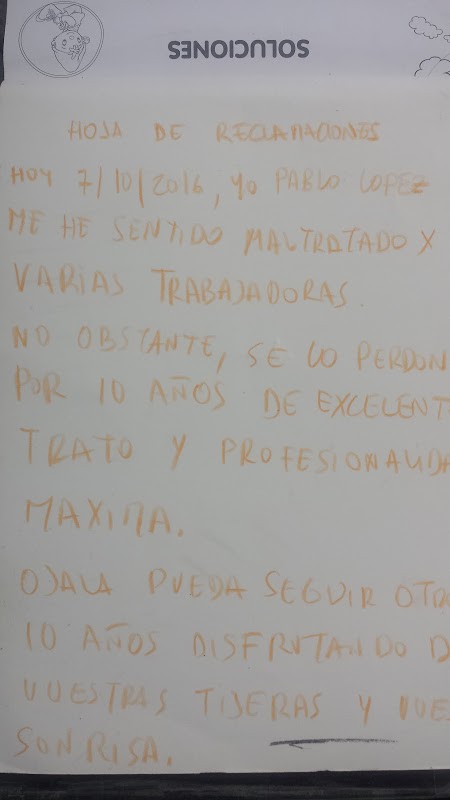 SOLUCIONES
HOJA DE RECLAMACIONES
HOY 7/10/2016, YO PABLO LOPEZ
ME HE SENTIDO MALTRATADO X
VARIAS TRABAJADORAS.
NO OBSTANTE, SE LO PERDON
POR 10 AÑOS DE EXCELENT
TRATO Y PROFESIONALIDA
MAXIMA.
OJALA PUEDA SEGUIR OTRO
10 AÑOS DISFRUTANDO D
VUESTRAS TIJERAS Y VUES
SONRISA.